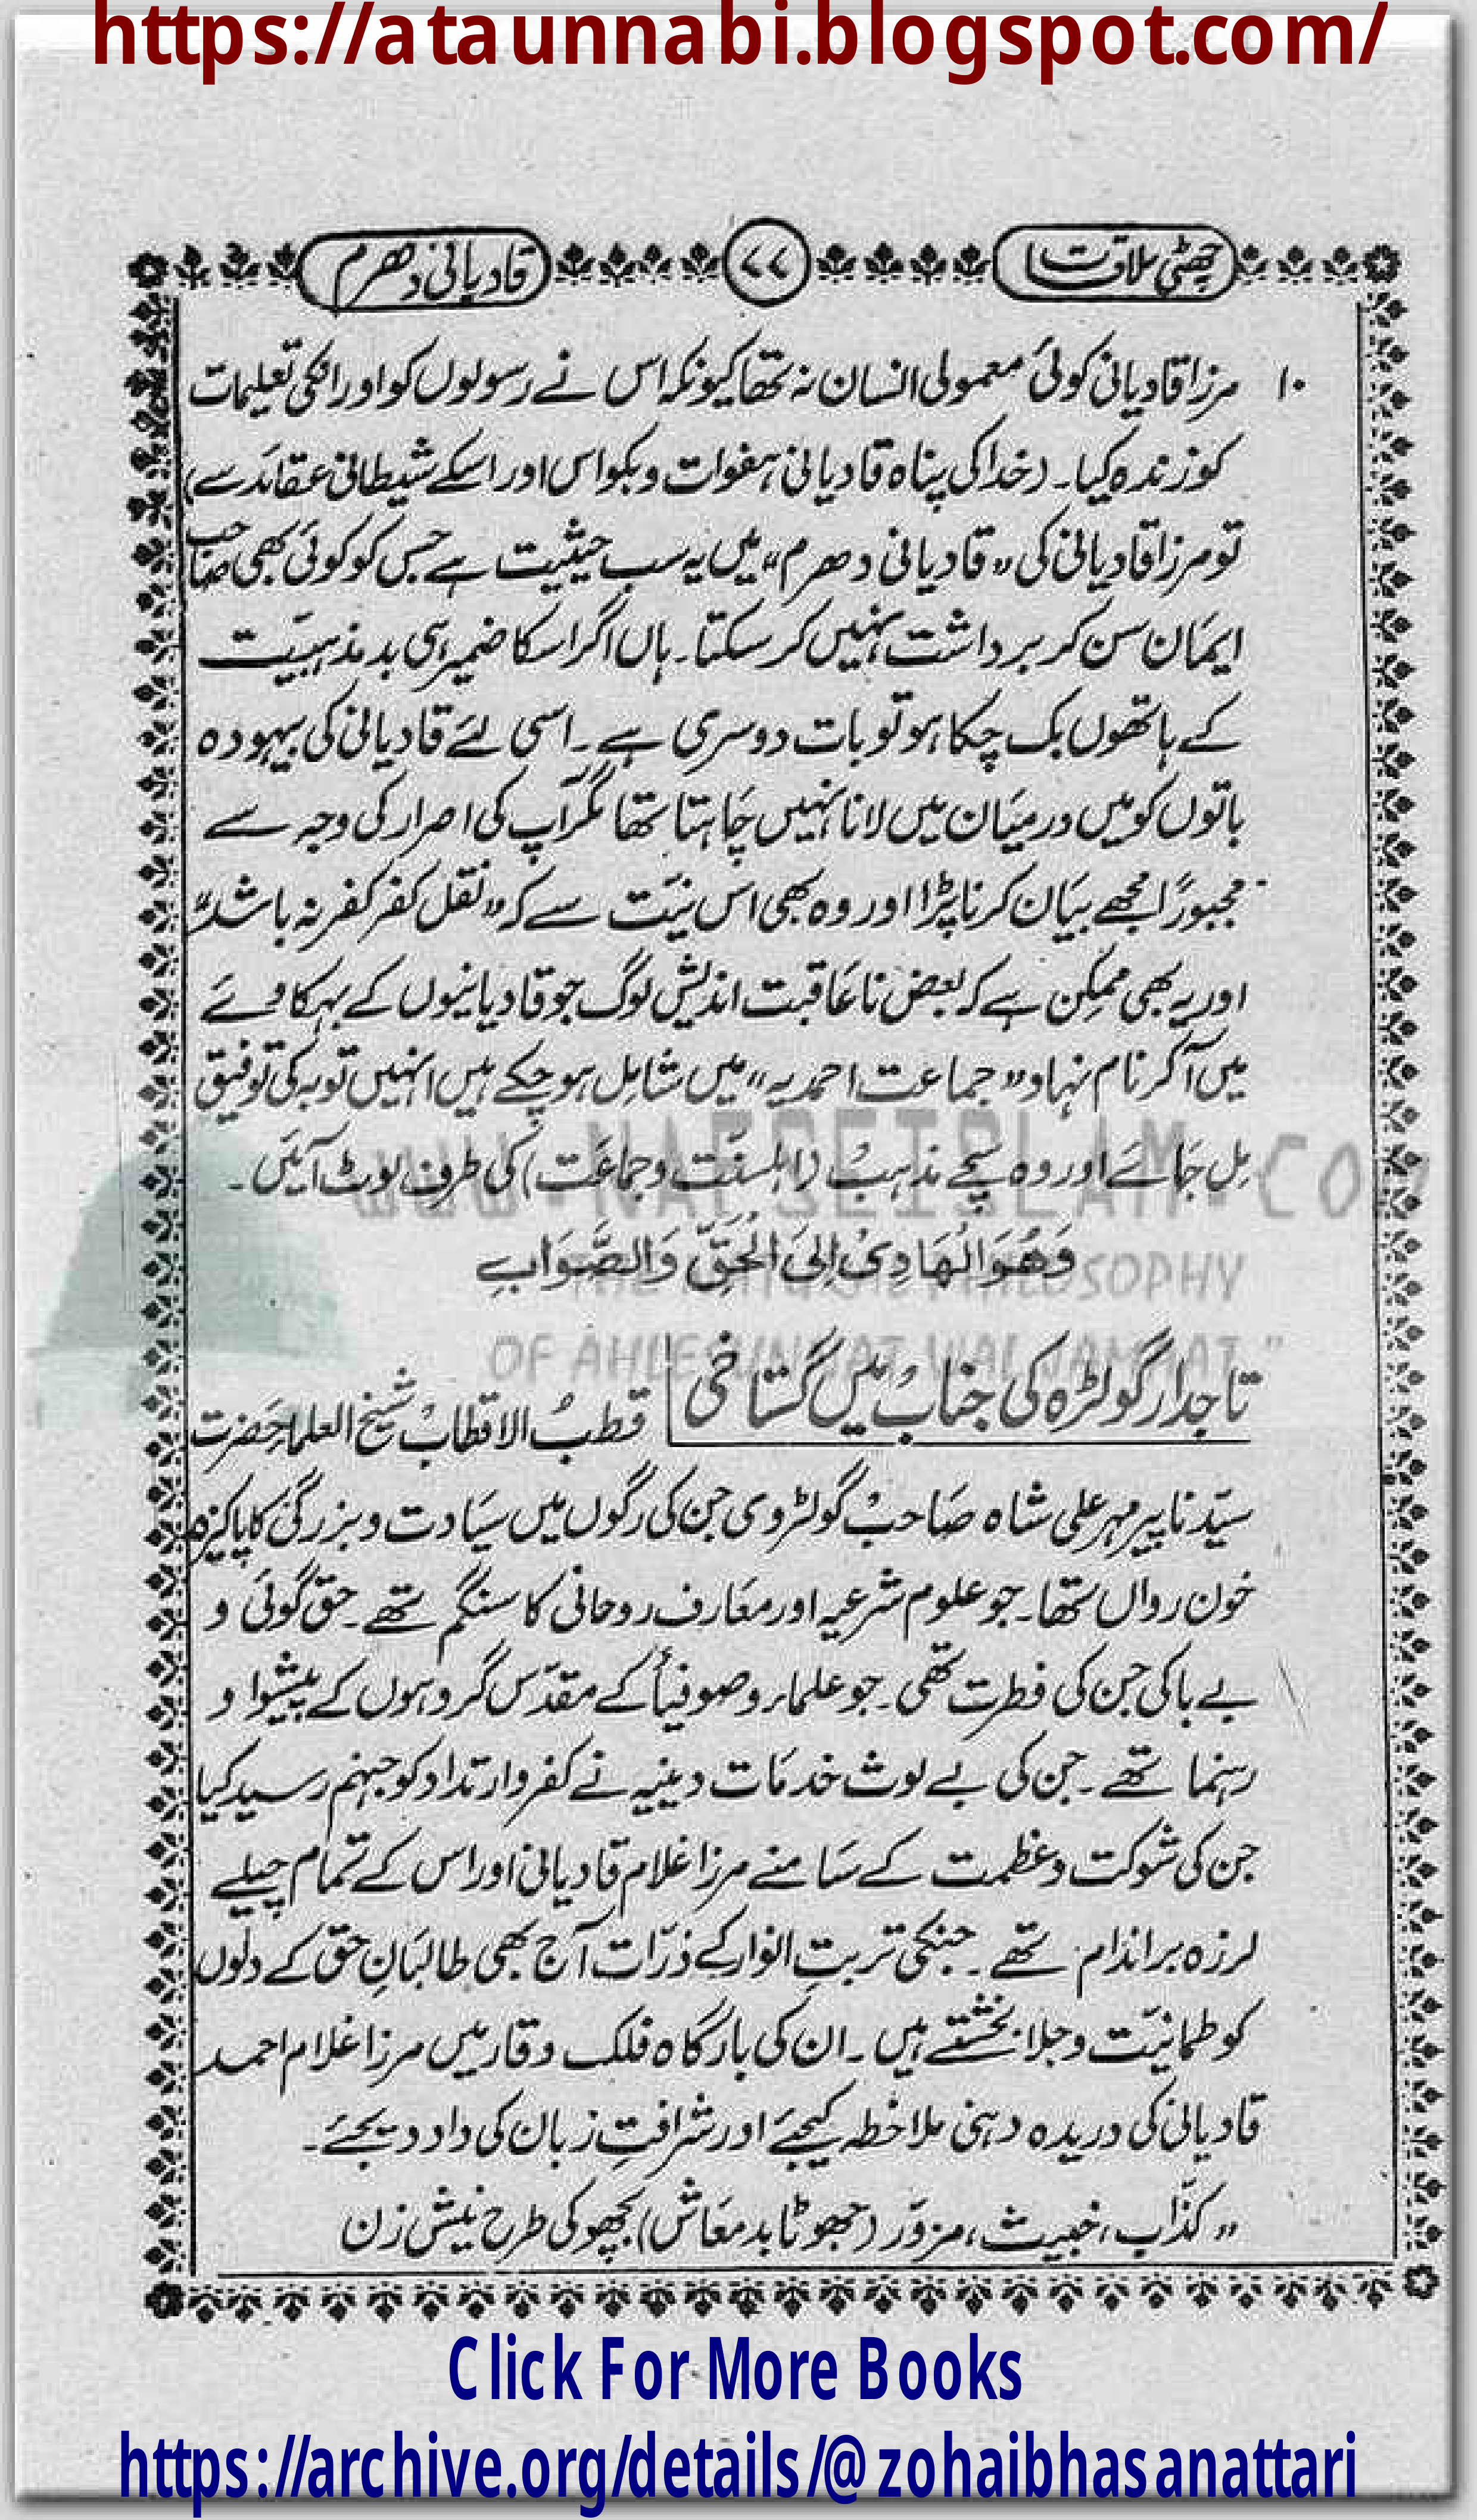 https://ataunnabi.blogspot.com/
چھٹی ملاقات
۷۷
قادیانی دھرم
۱۰ مرزا قادیانی کوئی معمولی انسان نہ تھا کیونکہ اس نے رسولوں کو اور انکی تعلیمات
کو زندہ کیا۔ (خدا کی پناہ قادیانی ہفوات و بکواس اور اسکے شیطانی عقائد سے)
تو مرزا قادیانی کی ”قادیانی دھرم“ میں یہ سب حیثیت ہے جس کو کوئی بھی صاحب
ایمان سن کر برداشت نہیں کر سکتا۔ ہاں اگر اسکا ضمیر ہی بد مذہبیت
کے ہاتھوں بک چکا ہو تو بات دوسری ہے۔ اسی لئے قادیانی کی بیہودہ
باتوں کو میں درمیان میں لانا نہیں چاہتا تھا مگر آپ کی اصرار کی وجہ سے
مجبوراً مجھے بیان کرنا پڑا اور وہ بھی اس نیت سے کہ ”نقل کفر کفر نہ باشد“
اور یہ بھی ممکن ہے کہ بعض ناعاقبت اندیش لوگ جو قادیانیوں کے بہکاوے
میں آکر نام نہاد ”جماعت احمدیہ“ میں شامل ہو چکے ہیں انہیں توبہ کی توفیق
مل جائے اور وہ سچے مذہب (اہلسنّت و جماعت) کی طرف لوٹ آئیں۔
WWW.NAFSEISLAM.COM
وَهُوَ الْهَادِیْ اِلَی الْحَقِّ وَالصَّوَابِ
PHILOSOPHY
OF AHLESUNNAT WAL JAMAAT "
تاجدار گولڑہ کی جناب میں گستاخی
قطب الاقطاب شیخ العلماء حضرت
سیّدنا پیر مہر علی شاہ صاحب گولڑوی جن کی رگوں میں سیادت و بزرگی کا پاکیزہ
خون رواں تھا۔ جو علوم شرعیہ اور معارف روحانی کا سنگم تھے۔ حق گوئی و
بے باکی جن کی فطرت تھی۔ جو علماء و صوفیاء کے مقدّس گروہوں کے پیشوا و
رہنما تھے۔ جن کی بے لوث خدمات دینیہ نے کفر وارتداد کو جہنم رسید کیا
جن کی شوکت و عظمت کے سامنے مرزا غلام قادیانی اور اس کے تمام چیلے
لرزہ براندام تھے۔ جنکی تربتِ انوار کے ذرّات آج بھی طالبانِ حق کے دلوں
کو طمانیّت و جلا بخشتے ہیں۔ ان کی بارگاہ فلک وقار میں مرزا غلام احمد
قادیانی کی دریدہ دہنی ملاحظہ کیجئے اور شرافتِ زبان کی داد دیجئے۔
”کذّاب، خبیث، مزوّر (جھوٹا بدمعاش) بچھو کی طرح نیش زن
Click For More Books
https://archive.org/details/@zohaibhasanattari